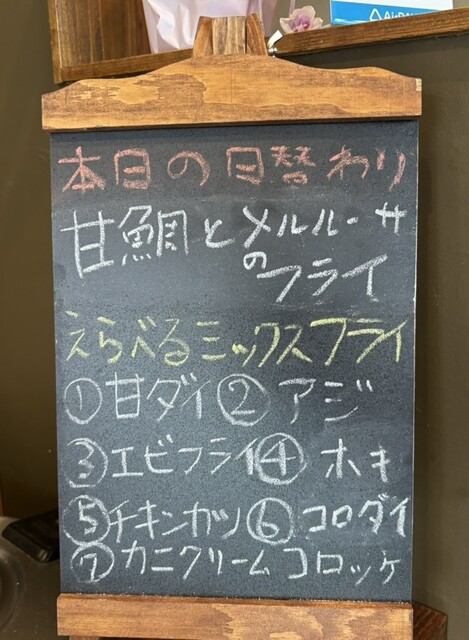 本日の日替わり
甘鯛とメルルーサ
のフライ
えらべるミックスフライ
①甘ダイ②アジ
③エビフライ④ホキ
⑤チキンカツ⑥コロダイ
⑦カニクリームコロッケ